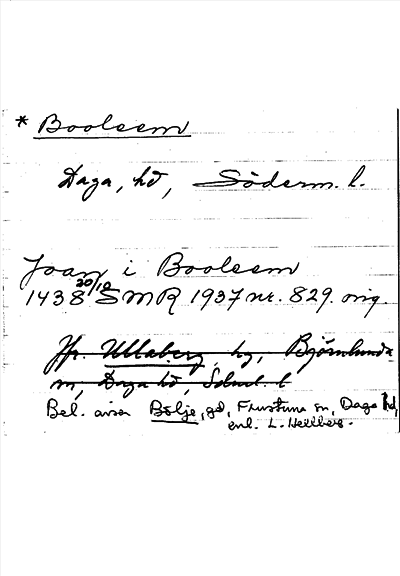 * Booleem
Daga, hd, Söderm. l.
Joan i Booleem
1438 20/10 SMR 1937 nr. 829. orig.
Jfr. Ullaberg, hg, Björnlunda
sn, Daga hd, Sdml. l
Bel. avser Bölja, gd, Frustuna sn, Daga hd,
enl. L. Hellberg.